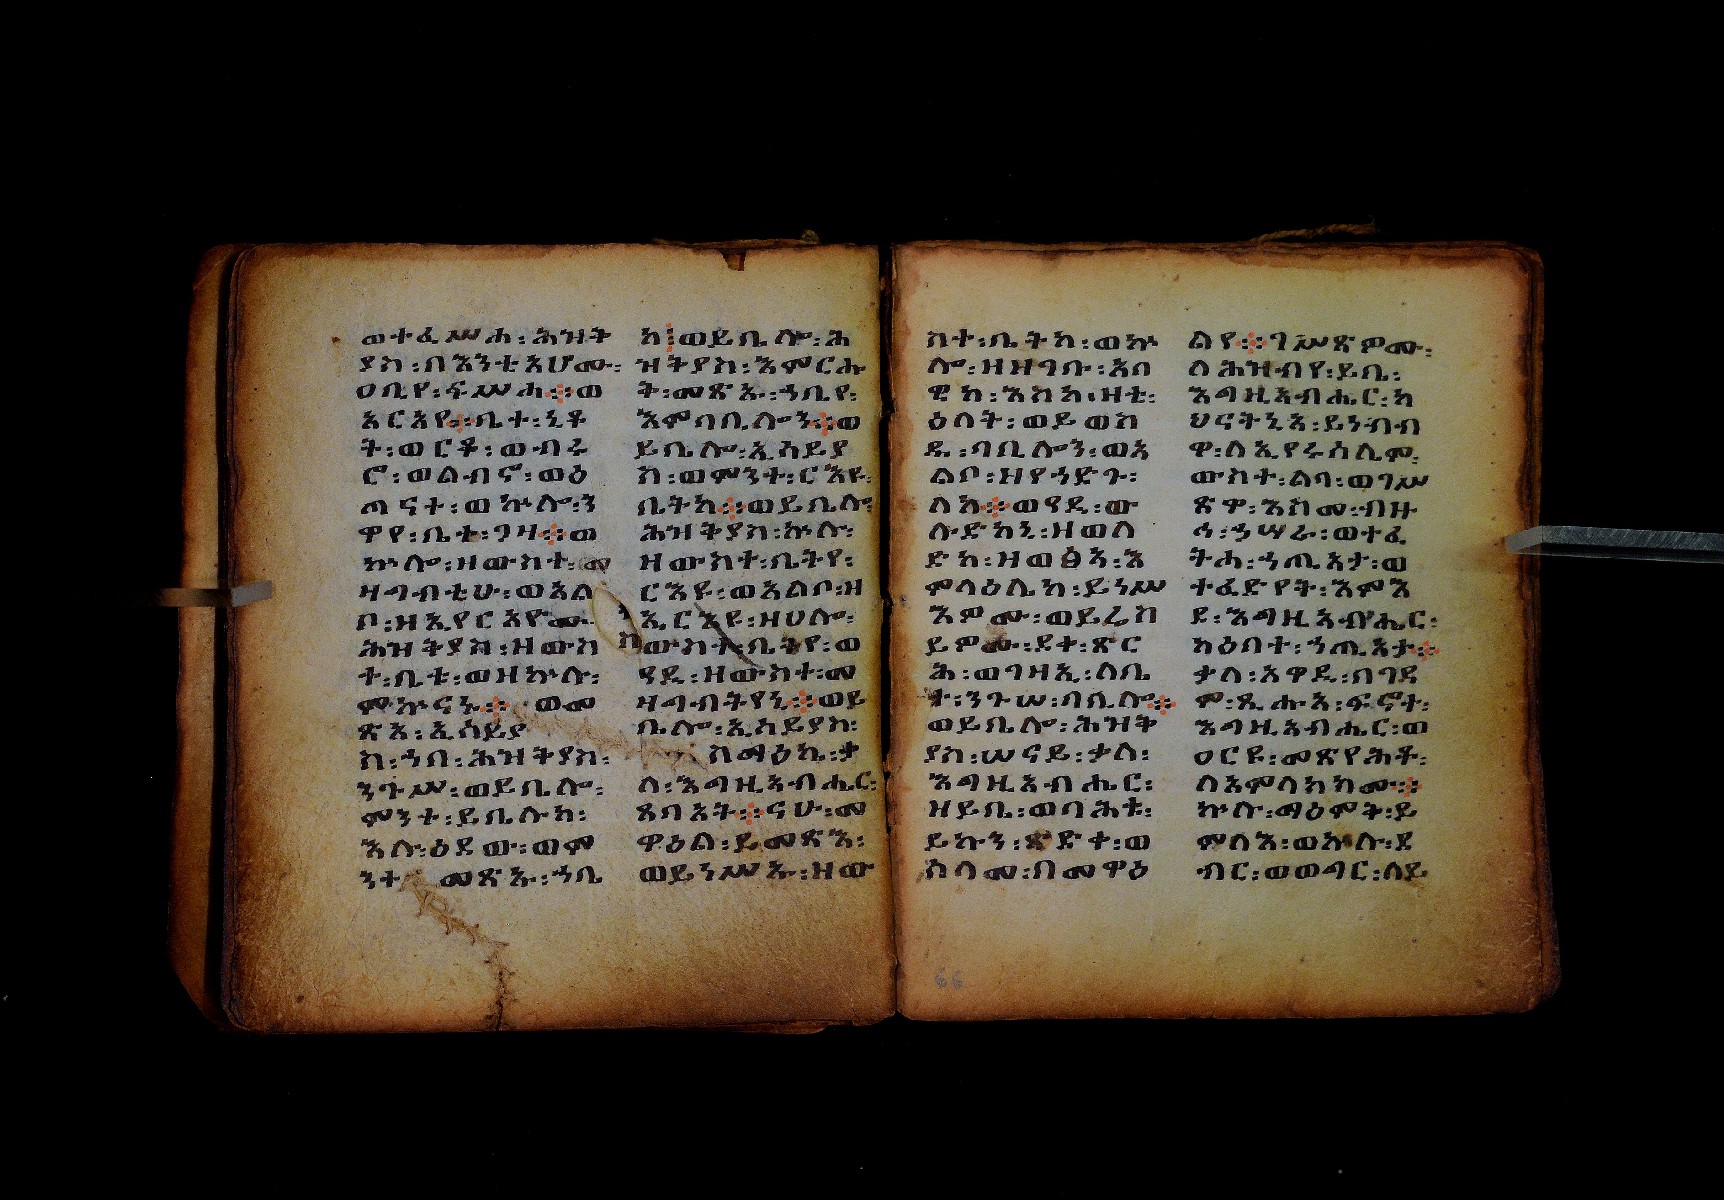 ወተፈሥሐ፡ሕዝቅ
ያስ፡በእንቲአሆሙ፡
ዐቢየ፡ፍሥሐ፨ወ
አርአየ፨ቤተ፡ኒቆ
ት፡ወርቆ፡ወብሩ
ሮ፡ወልብኖ፡ወዕ
ጣናተ፡ወኵሎ፡ን
ዋየ፡ቤቱ፡ገዛ፨ወ
ኵሎ፡ዘውስተ፡መ
ዛግብቲሁ፡ወአል
ቦ፡ዘኢየርአዮሙ፡
ሕዝቅያስ፡ዘውስ
ተ፡ቤቱ፡ወዘኵሉ፡
ምኵናኑ፨ወመ
ጽአ፡ኢሳይያ
ስ፡ኀበ፡ሕዝቅያስ፡
ንጉሥ፡ወይቤሎ፡
ምንተ፡ይቤሉከ፡
እሉ፡ዕደው፡ወም
ንተ፡መጽኡ፡ኀቤ
ከ፨ወይቤሎ፡ሕ
ዝቅያስ፡እምርሑ
ቅ፡መጽኡ፡ኀቤየ፡
እምባቢሎን፨ወ
ይቤሎ፡ኢሳይያ
ስ፡ወምንተ፡ርእዩ፡
ቤትከ፨ወይቤሎ፡
ሕዝቅያስ፡ኵሎ፡
ዘውስተ፡ቤትየ፡
ርእዩ፡ወአልቦ፡ዘ
ኢርእዩ፡ዘሀሎ፡
ውስተ፡ቤትየ፡ወ
ዓዲ፡ዘውስተ፡መ
ዛግብትየኒ፨ወይ
ቤሎ፡ኢሳይያስ፡
ስማዕኬ፡ቃ
ለ፡እግዚአብሔር፡
ጸባኦት፨ናሁ፡መ
ዋዕል፡ይመጽእ፡
ወይነሥኡ፡ዘው
ስተ፡ቤትከ፡ወኵ
ሎ፡ዘዘገቡ፡አበ
ዊከ፡እስከ፡ዛቲ፡
ዕለት፡ወይወስ
ዱ፡ባቢሎን፡ወአ
ልቦ፡ዘየኀድጉ፡
ለከ፨ወዓዲ፡ው
ሉድከኒ፡ዘወለ
ድከ፡ዘወፅአ፡እ
ምላዕሌከ፡ይነሥ
እዎሙ፡ወይሬስ
ይዎሙ፡ደቀ፡ጽር
ሕ፡ወገዛኢ፡ለቤ
ተ፡ንጉሠ፡ባቢሎ፨
ወይቤሎ፡ሕዝቅ
ያስ፡ሠናይ፡ቃለ፡
እግዚአብሔር፡
ዘይቤ፡ወባሕቱ፡
ይኩን፡ጽድቀ፡ወ
ሰላመ፡በመዋዕ
ልየ፨ገሥጽዎሙ፡
ለሕዝብየ፡ይቤ፡
እግዚአብሔር፡ካ
ህናትኒአ፡ይነብብ
ዋ፡ለኢየሩሳሌም፡
ውስተ፡ልባ፡ወገሥ
ጽዋ፡እስመ፡ብዙ
ኅ፡ኀሣራ፡ወተፈ
ትሐ፡ኀጢአታ፡ወ
ተፈድየት፡እምእ
ደ፡እግዚአብሔር፡
ካዕበተ፡ኀጢአታ፨
ቃለ፡አዋዲ፡በገዳ
ም፡ጺሑአ፡ፍኖተ፡
እግዚአብሔር፡ወ
ዐርዩ፡መጽየሕቶ፡
ለአምላክከሙ፨
ኵሉ፡ማዕምቅ፡ይ
ምላእ፡ወኵሉ፡ደ
ብር፡ወወግር፡ለይ
66